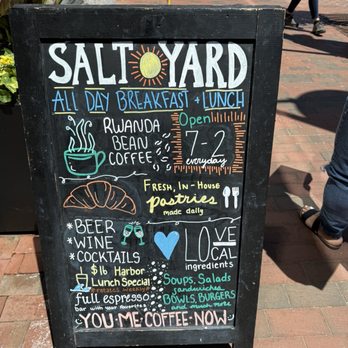 SALT YARD
ALL DAY BREAKFAST + LUNCH
RWANDA
BEAN
COFFEE
Open
7-2
everyday
FRESH, IN-HOUSE
pastries
made daily
*BEER
*WINE
*COCKTAILS
LOVE
LOCAL
ingredients
$16 Harbor
Lunch Special
rotates weekly
full espresso
bar with your favorites
SOUPS, SALADS
sandwiches
BOWLS, BURGERS
and much more
YOU·ME·COFFEE·NOW